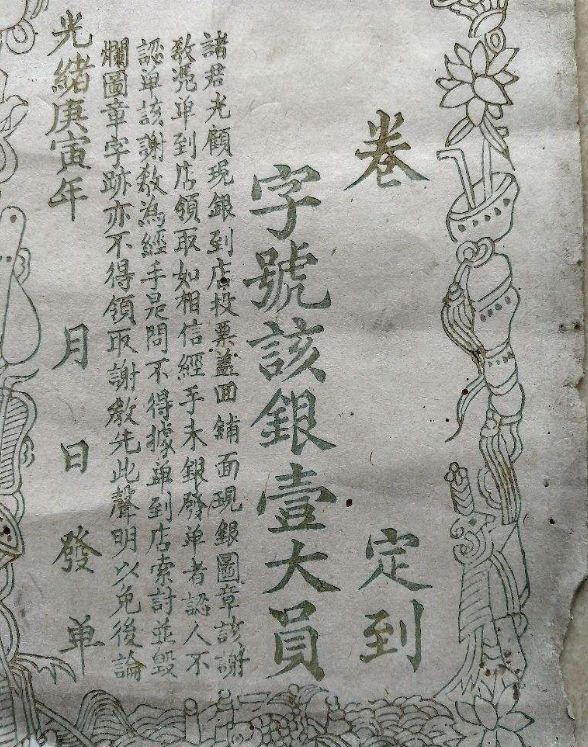 卷 定到
字號該銀壹大員
諸君光顧現銀到店投票蓋回鋪面現銀圖章該謝
教憑單到店領取如相信經手未銀發单者認人不
認单該謝教為經手是問不得據单到店索討並毀
爛圖章字跡亦不得領取謝教先此聲明以免後論
光緒庚寅年 月 日 發 单